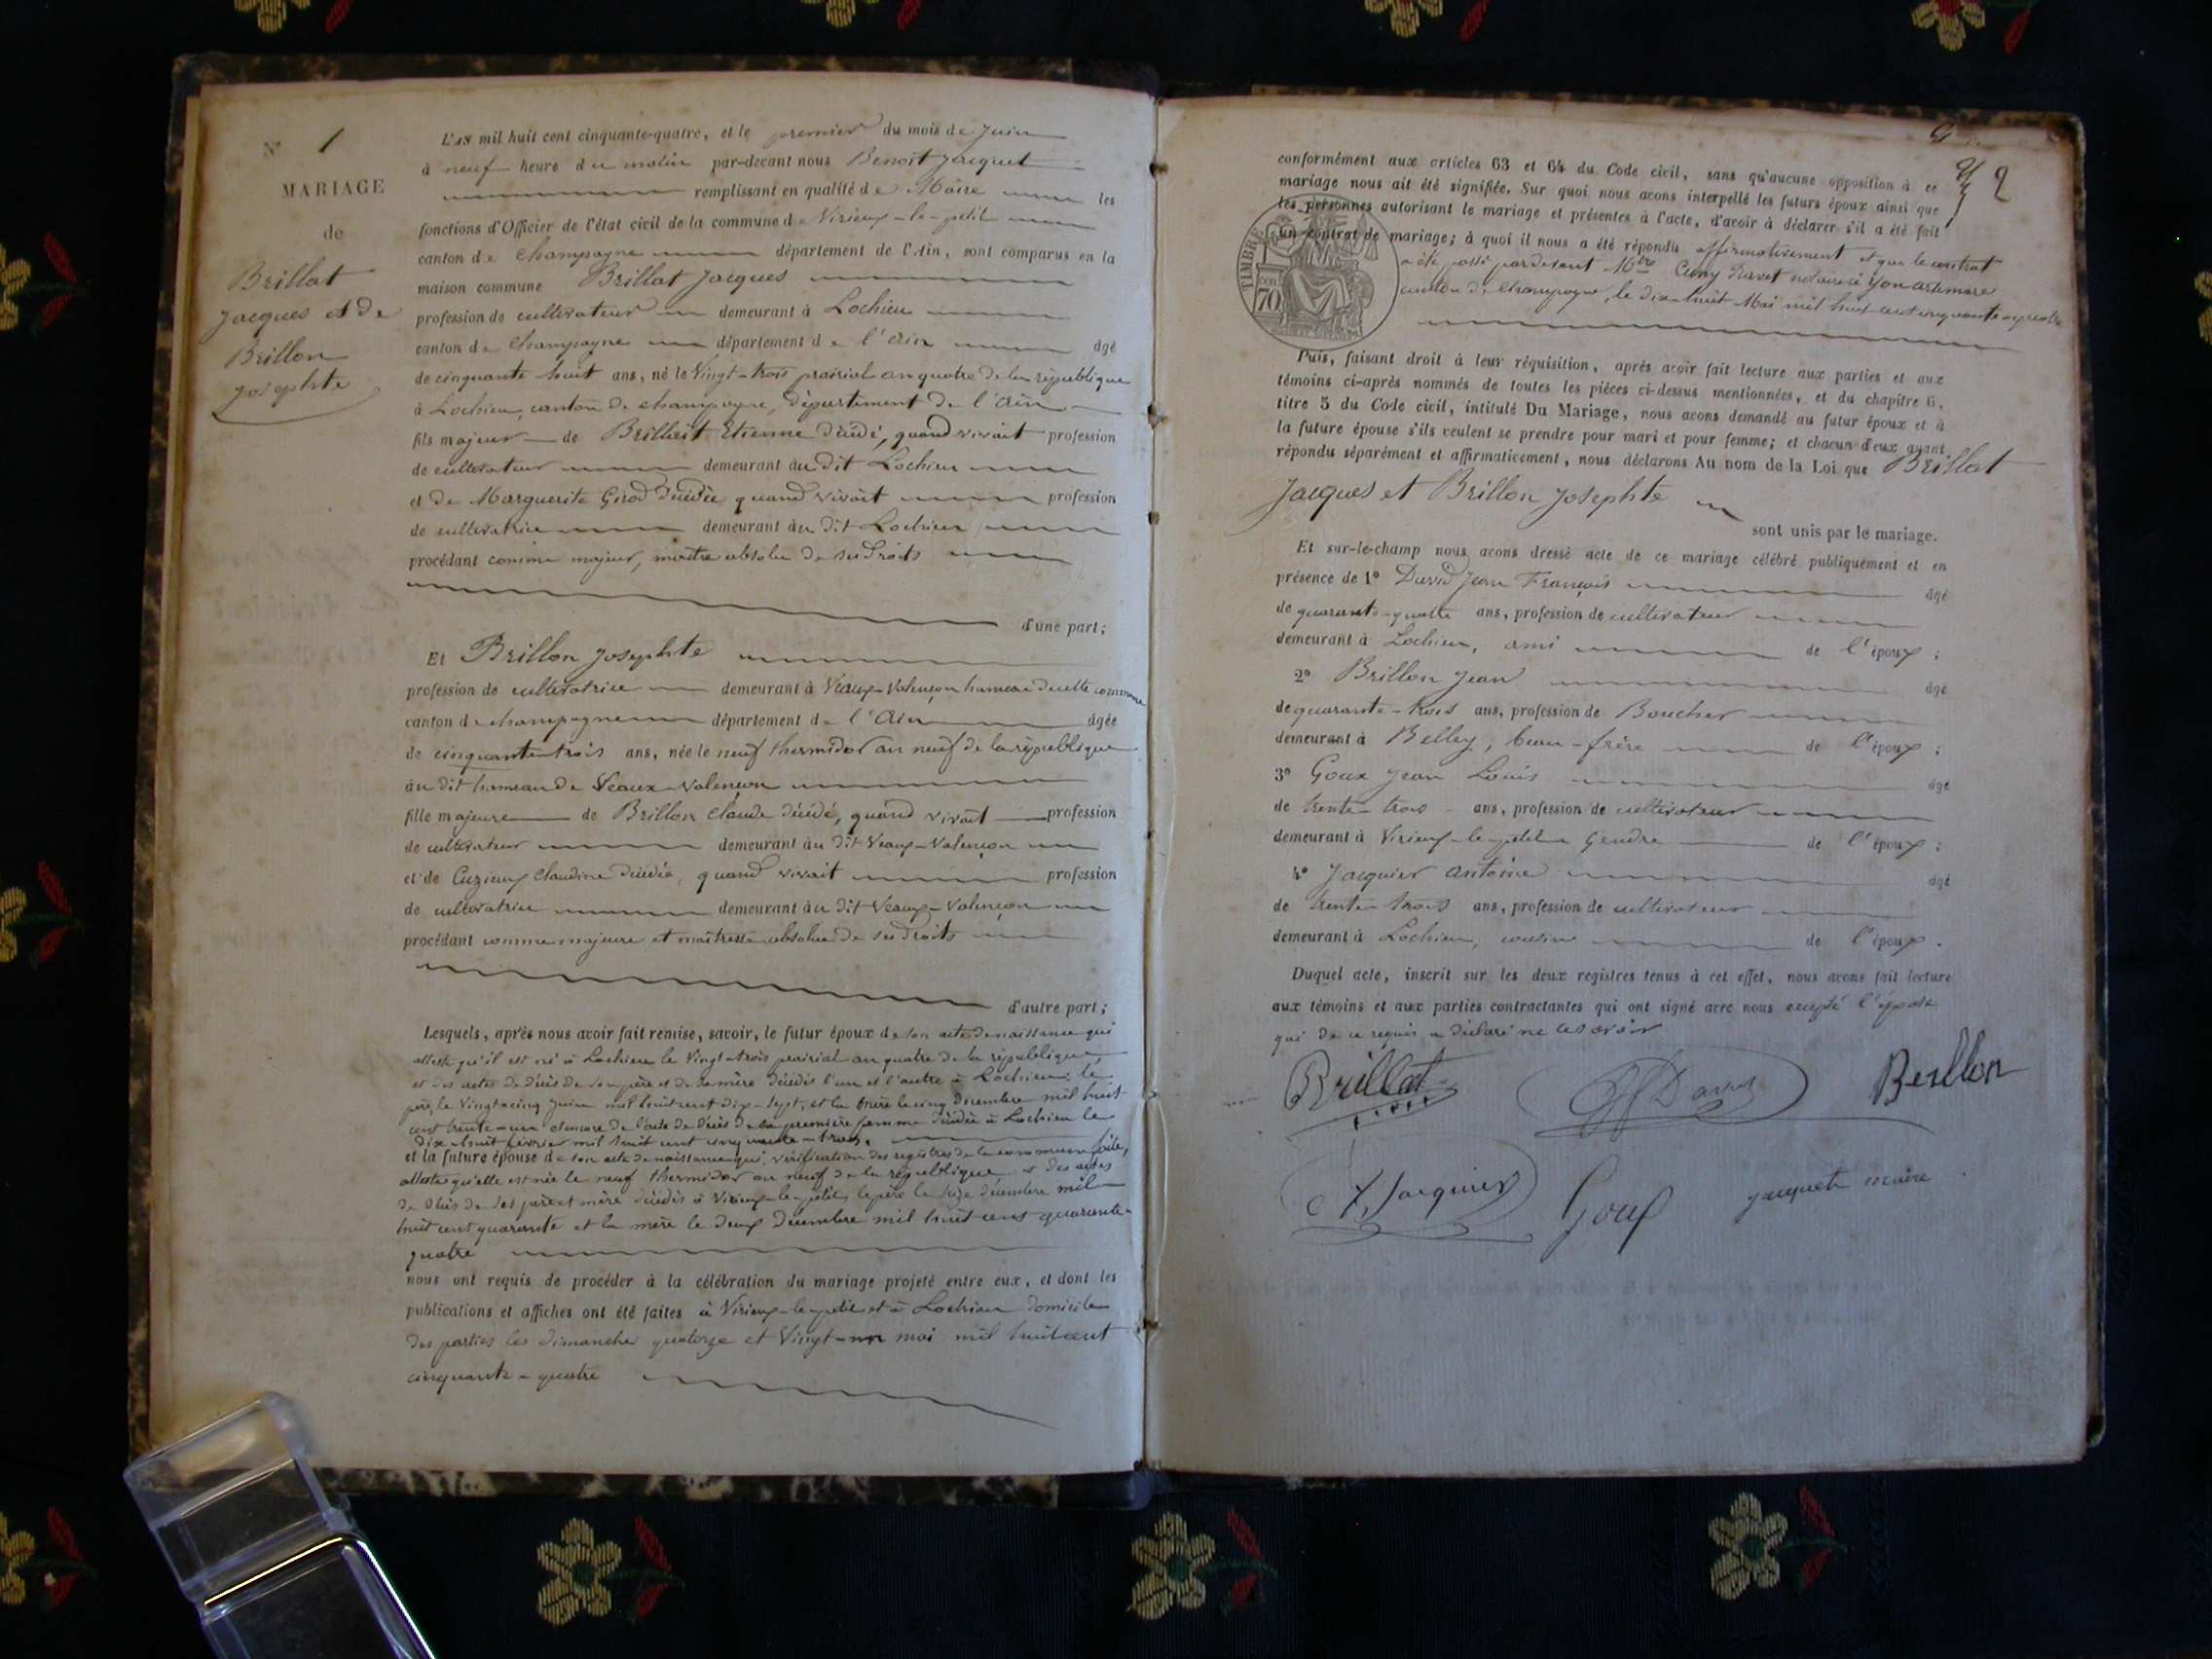 N° 1
MARIAGE
de
Brillat
Jacques et de
Brillon
Josephte
L'AN mil huit cent cinquante-quatre, et le premier du mois de Juin
à neuf heure du matin par-devant nous Benoit Jacquet
remplissant en qualité de Maire les
fonctions d'Officier de l'état civil de la commune de Virieux-le-petit
canton de Champagne département de l'Ain, sont comparus en la
maison commune Brillat Jacques
profession de cultivateur demeurant à Lochieu
canton de Champagne département de l'Ain âgé
de cinquante huit ans, né le Vingt-trois prairial an quatre de la république
à Lochieu, canton de champagne, département de l'Ain
fils majeur de Brillat Etienne décédé, quand vivait profession
de cultivateur demeurant au dit Lochieu
et de Marguerite Girod décédée quand vivait profession
de cultivatrice demeurant au dit Lochieu
procédant comme majeur, maitre absolu de ses droits
d'une part;
Et Brillon Josephte
profession de cultivatrice demeurant à Veaux-Valençon hameau de cette commune
canton de champagne département de l'Ain âgée
de cinquante-trois ans, née le neuf thermidor an neuf de la république
au dit hameau de Veaux-Valençon
fille majeure de Brillon Claude décédé, quand vivait profession
de cultivateur demeurant au dit Veaux-Valençon
et de Cuzieux Claudine décédée, quand vivait profession
de cultivatrice demeurant au dit Veaux-Valençon
procédant comme majeure et maitresse absolue de ses droits
d'autre part;
Lesquels, après nous avoir fait remise, savoir, le futur époux de son acte de naissance qui
atteste qu'il est né à Lochieu le Vingt-trois prairial an quatre de la république,
et des actes de décès de son père et de sa mère décédés l'un et l'autre à Lochieu, le
père, le Vingt-cinq Juin mil huit cent dix-sept, et la mère le cinq Décembre mil huit
cent trente-un et encore de l'acte de décès de sa première femme décédée à Lochieu le
dix-huit février mil huit cent cinquante-trois.
et la future épouse de son acte de naissance qui, vérification des registres de la commune faite,
atteste qu'elle est née le neuf thermidor an neuf de la république et des actes
de décès de ses père et mère décédés à Virieux-le-petit, le père le seize décembre mil
huit cent quarante et la mère le deux décembre mil huit cent quarante-
quatre
nous ont requis de procéder à la célébration du mariage projeté entre eux, et dont les
publications et affiches ont été faites à Virieux-le-petit et à Lochieu domicile
des parties les dimanches quatorze et Vingt-un mai mil huit cent
cinquante-quatre
2
conformément aux articles 63 et 64 du Code civil, sans qu'aucune opposition à ce
mariage nous ait été signifiée. Sur quoi nous avons interpellé les futurs époux ainsi que
les personnes autorisant le mariage et présentes à l'acte, d'avoir à déclarer s'il a été fait
un contrat de mariage; à quoi il nous a été répondu affirmativement et que le contrat
a été passé pardevant Mtre Cuny Ravet notaire à Yon artemare
canton de Champagne, le dix-huit Mai mil huit cent cinquante-quatre
TIMBRE
70
Puis, faisant droit à leur réquisition, après avoir fait lecture aux parties et aux
témoins ci-après nommés de toutes les pièces ci-dessus mentionnées, et du chapitre 6,
titre 5 du Code civil, intitulé Du Mariage, nous avons demandé au futur époux et à
la future épouse s'ils veulent se prendre pour mari et pour femme; et chacun d'eux ayant
répondu séparément et affirmativement, nous déclarons Au nom de la Loi que Brillat
Jacques et Brillon Josephte
sont unis par le mariage.
Et sur-le-champ nous avons dressé acte de ce mariage célébré publiquement et en
présence de 1° David Jean François âgé
de quarante-quatre ans, profession de cultivateur
demeurant à Lochieu, ami de l'époux;
2° Brillon Jean âgé
de quarante-trois ans, profession de Boucher
demeurant à Belley, beau-frère de l'époux;
3° Goux Jean Louis âgé
de trente-trois ans, profession de cultivateur
demeurant à Virieux-le-petit Gendre de l'époux;
4° Jacquier Antoine âgé
de trente-trois ans, profession de cultivateur
demeurant à Lochieu, cousin de l'époux.
Duquel acte, inscrit sur les deux registres tenus à cet effet, nous avons fait lecture
aux témoins et aux parties contractantes qui ont signé avec nous excepté l'épouse
qui de ce requis a déclaré ne le savoir
Brillat David Berllon
A. Jacquier Goux Jacquet maire